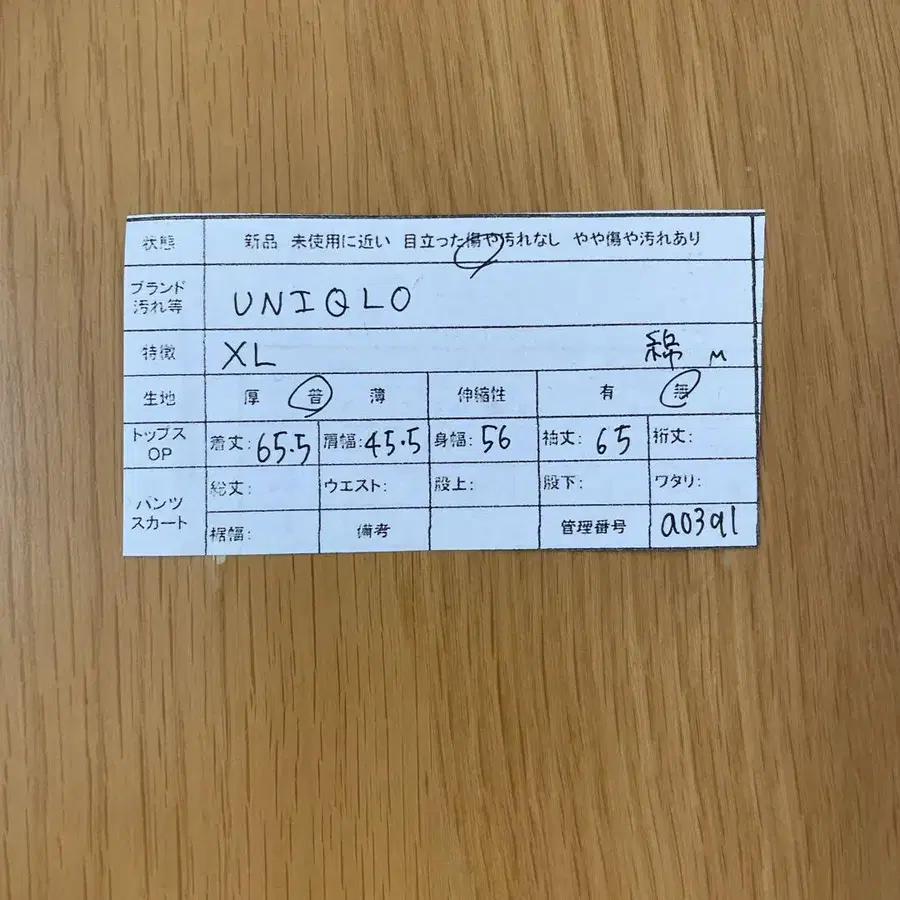 状態 新品 未使用に近い 目立った傷や汚れなし やや傷や汚れあり
ブランド
汚れ等
UNIQLO
特徴 XL 綿 M
生地 厚 普 薄 伸縮性 有 無
トップス
OP
着丈: 65.5 肩幅: 45.5 身幅: 56 袖丈: 65 裄丈:
パンツ
スカート
総丈: ウエスト: 股上: 股下: ワタリ:
裾幅: 備考 管理番号 a0391